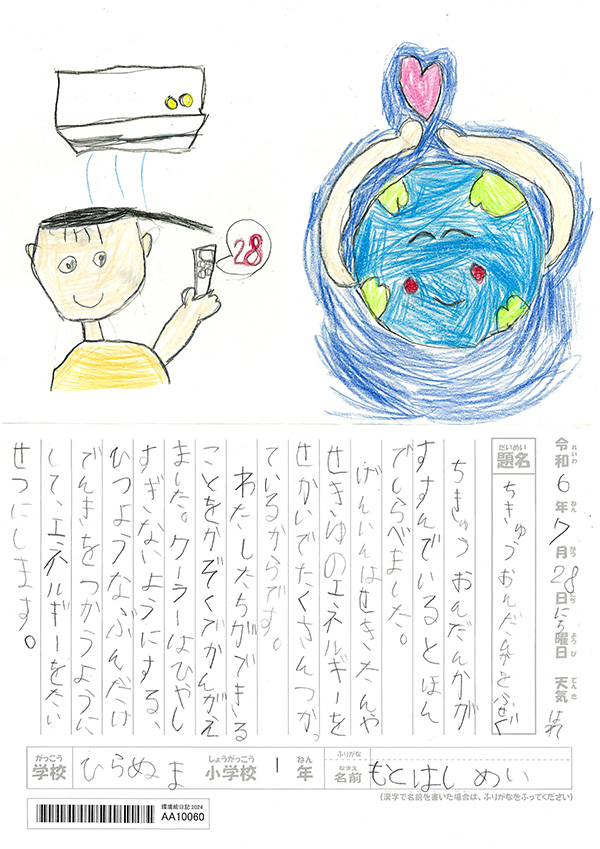 28
令和6年7月28日にち曜日 天気 はれ
れいわ ねん がつ にち ようび てんき
だいめい
題名
ちきゅうおんだんかをふせぐ
ちきゅうおんだんかが
すすんでいるとほん
でしらべました。
げんいんはせきたんや
せきゆのエネルギーを
せかいでたくさんつかっ
ているからです。
わたしたちができる
ことをかぞくでかんがえ
ました。クーラーはひやし
すぎないようにする、
ひつようなぶんだけ
でんきをつかうように
して、エネルギーをたい
せつにします。
がっこう しょうがっこう ねん ふりがな なまえ
学校 ひらぬま 小学校 1 年 名前 もとはし めい
(漢字で名前を書いた場合は、ふりがなをふってください)
環境絵日記2024
AA10060